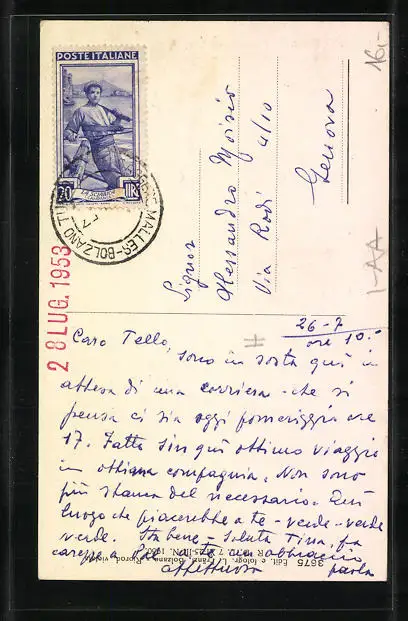 POSTE ITALIANE
20
LIRE
MALLES-BOLZANO
28 LUG. 1953
16,-
I-AA
#
Signor
Alessandro
Via Rodi 4/10
Genova
26-7
ore 10.
Caro Tello,
sono in sosta qui in
attesa di una corriera - che si
pensa ci sia oggi pomeriggio ore
17. Fatto sin qui ottimo viaggio
in ottima compagnia. Non sono
più stanca del necessario. Qui
luogo che piacerebbe a te - verde - verde
verde. Sta bene - Saluta Tina, fa
a te un abbraccio
affettuoso
paola
3675 Edit. e fotogr. L. Fränzl, Bolzano - Riprod. vietata